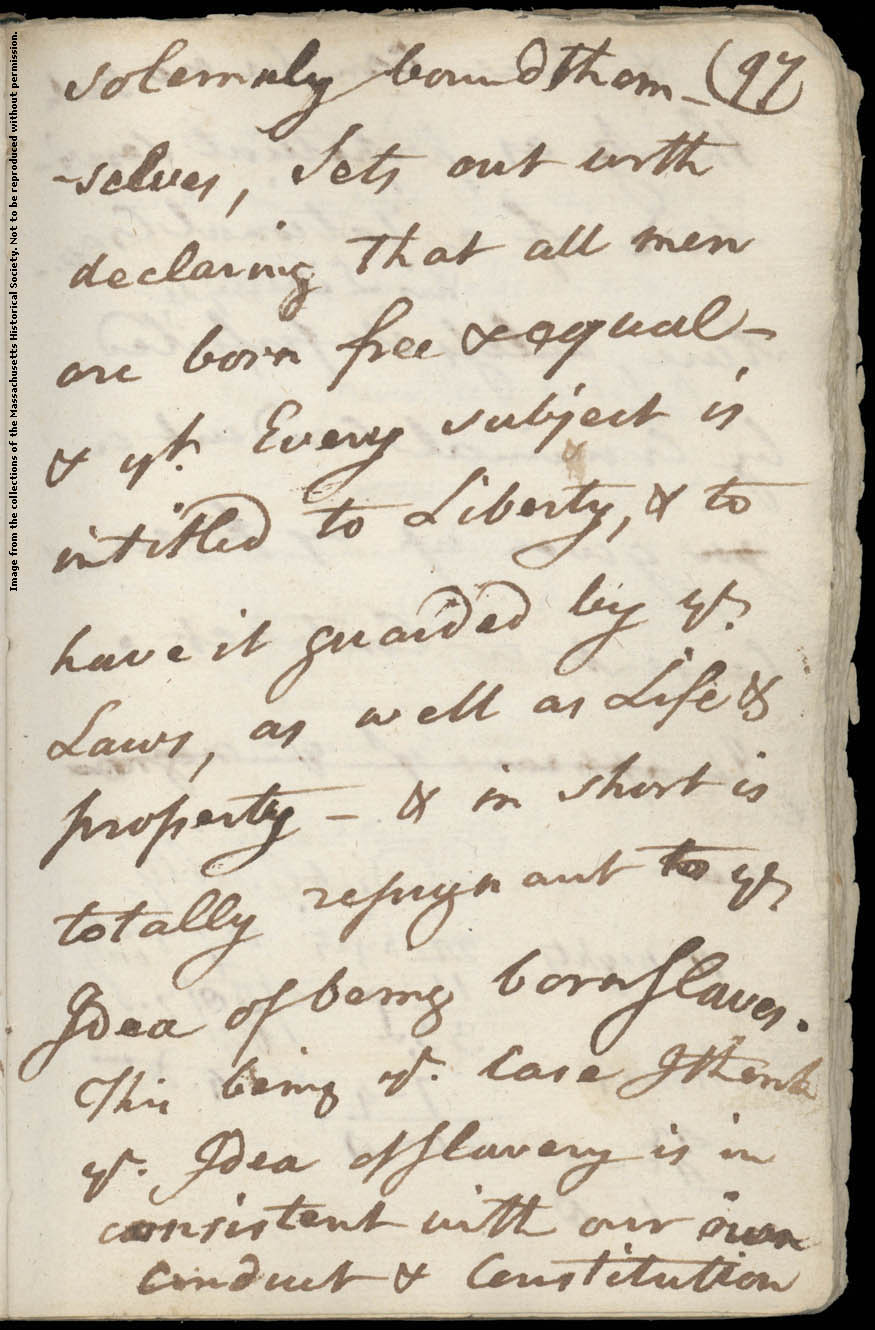 solemnly bound them- (97
-selves, Sets out with
declaring that all men
are born free & equal-
& yt. Every subject is
intitled to Liberty, & to
have it guarded by ye.
Laws, as well as Life &
property - & in short is
totally repugnant to ye
Idea of being born slaves.
This being ye. Case I think
ye. Idea of slavery is in
consistent with our own
conduct & Constitution
Image from the collections of the Massachusetts Historical Society. Not to be reproduced without permission.